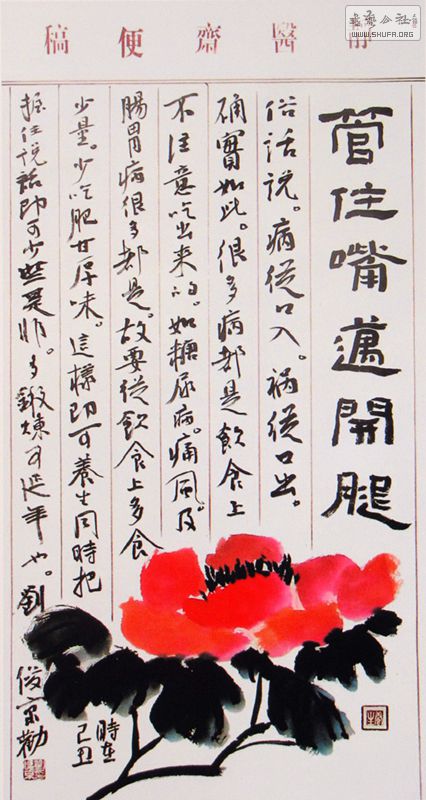 醫齋便稿
WWW.SHUFA.ORG
管住嘴邁開腿
俗話說。病從口入。禍從口出。
确實如此。很多病都是飲食上
不注意吃出来的。如糖尿病。痛風。及
腸胃病很多都是。故要從飲食上多食
少量。少吃肥甘厚味。這樣即可養生同時把
握住說話即可少些是非。多鍛煉可延年也。劉
俊京勸
時在
己丑